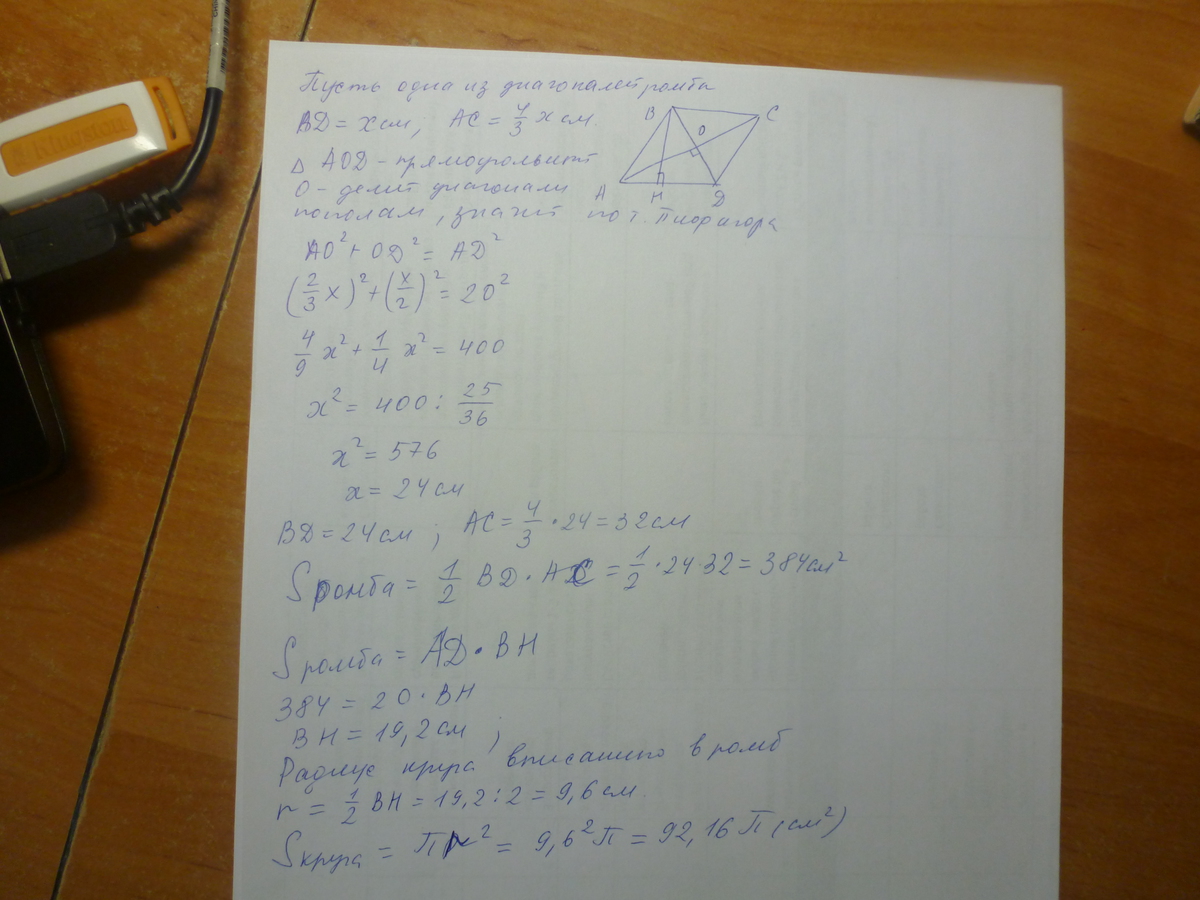 Пусть одна из диагоналей ромба
BD = x см; AC = 4/3 x см.
Δ AOD - прямоугольный
O - делит диагонали
пополам, значит по т. Пифагора
AO² + OD² = AD²
(2/3 x)² + (x/2)² = 20²
4/9 x² + 1/4 x² = 400
x² = 400 : 25/36
x² = 576
x = 24 см
BD = 24 см; AC = 4/3 · 24 = 32 см
S ромба = 1/2 BD · AC = 1/2 · 24 · 32 = 384 см²
S ромба = AD · BH
384 = 20 · BH
BH = 19,2 см;
Радиус круга вписанного в ромб
r = 1/2 BH = 19,2 : 2 = 9,6 см.
S круга = Пr² = 9,6² П = 92,16 П (см²)
B
C
O
A
H
D
Kingston